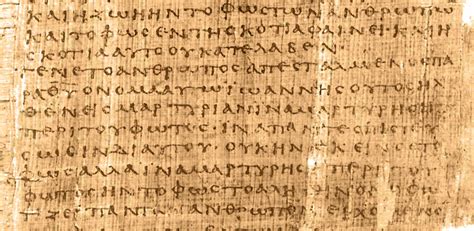 ΚΑΙ Η ΖΩΗ ΗΝ ΤΟ ΦΩϹ ΤΩΝ ΑΝΘΡΩΠΩ
ΚΑΙ ΤΟ ΦΩϹ ΕΝ ΤΗ ϹΚΟΤΙΑ ΦΑΙΝΕΙ ΚΑΙ Η
ϹΚΟΤΙΑ ΑΥΤΟ ΟΥ ΚΑΤΕΛΑΒΕΝ·
ΓΕΝΕΤΟ ΑΝΘΡΩΠΟϹ ΑΠΕϹΤΑΛΜΕΝΟϹ ΠΑ
ΡΑ ΘΥ ΟΝΟΜΑ ΑΥΤΩ ΙΩΑΝΝΗϹ ΟΥΤΟϹ ΗΛ
ΘΕΝ ΕΙϹ ΜΑΡΤΥΡΙΑΝ ΙΝΑ ΜΑΡΤΥΡΗϹΗ
ΠΕΡΙ ΤΟΥ ΦΩΤΟϹ· ΙΝΑ ΠΑΝΤΕϹ ΠΙϹΤΕΥ
ϹΩϹΙΝ ΔΙ ΑΥΤΟΥ· ΟΥΚ ΗΝ ΕΚΕΙΝΟϹ ΤΟ
ΦΩϹ ΑΛΛΑ ΙΝΑ ΜΑΡΤΥΡΗϹΗ ΠΕΡΙ ΤΟΥ
ΦΩΤΟϹ ΗΝ ΤΟ ΦΩϹ ΤΟ ΑΛΗΘΙΝΟΝ Ο ΦΩ
ΤΙΖΕΙ ΠΑΝΤΑ ΑΝΘΡΩΠΟΝ ΕΡΧΟΜΕΝΟ